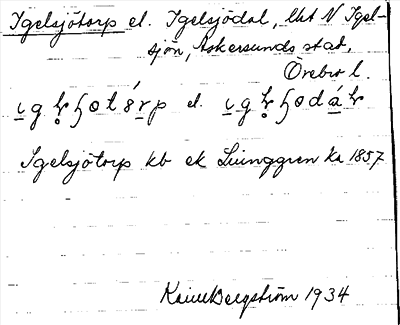 Igelsjötorp el. Igelsjödal, lht N Igel-
sjön, Askersunds stad,
Örebro l.
el.
Igelsjötorp kb ek Ljunggren Ka 1857
Bergström 1934